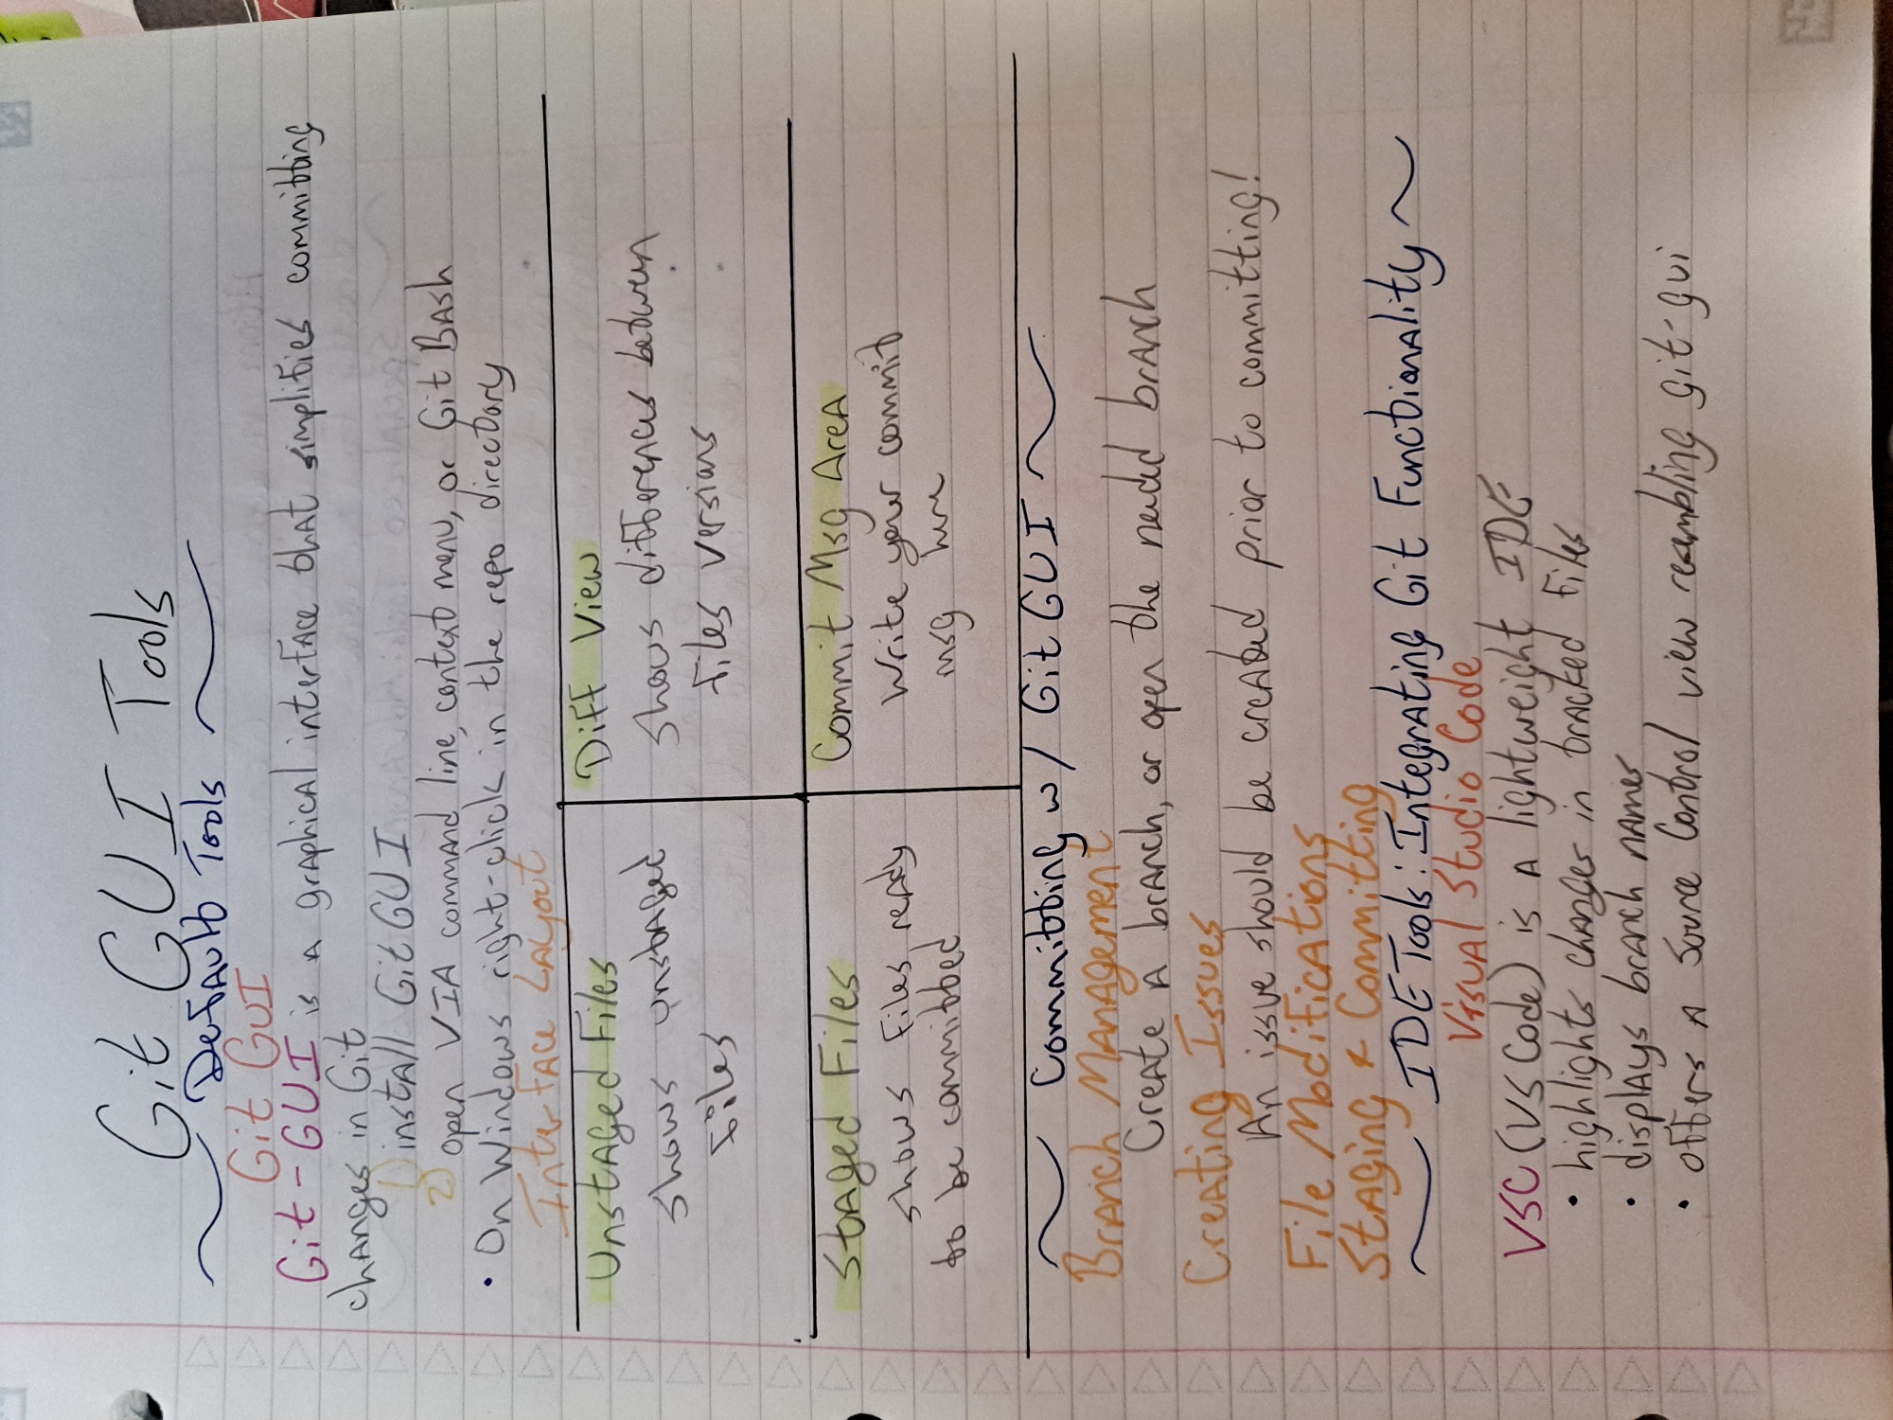 Git GUI Tools
Default Tools
Git GUI
Git-GUI is a graphical interface that simplifies committing
changes in Git
1) install Git GUI
2) open VIA command line, context menu, or Git Bash
• On Windows right-click in the repo directory
Interface Layout
Unstaged Files
shows unstaged
files
Diff View
shows differences between
files versions
Staged Files
shows files ready
to be committed
Commit Msg Area
Write your commit
msg here
Committing w/ Git GUI
Branch Management
Create a branch, or open the needed branch
Creating Issues
An issue should be created prior to committing!
File Modifications
Staging & Committing
IDE Tools: Integrating Git Functionality
Visual Studio Code
VSC (VS Code) is a lightweight IDE
• highlights changes in tracked files
• displays branch names
• offers a Source Control view resembling git-gui